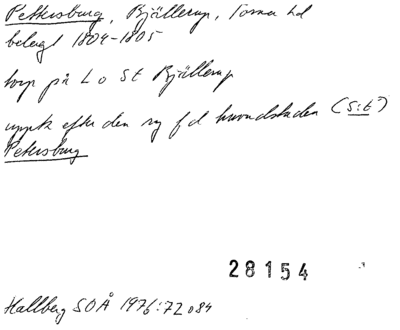 Petersburg, Bjällerup, Torna hd
belagt 1804-1805
torp på L o St Bjällerup
uppk efter den ry f d huvudstaden (S:t)
Petersburg
28154
Hallberg SOÅ 1976:72 o 84